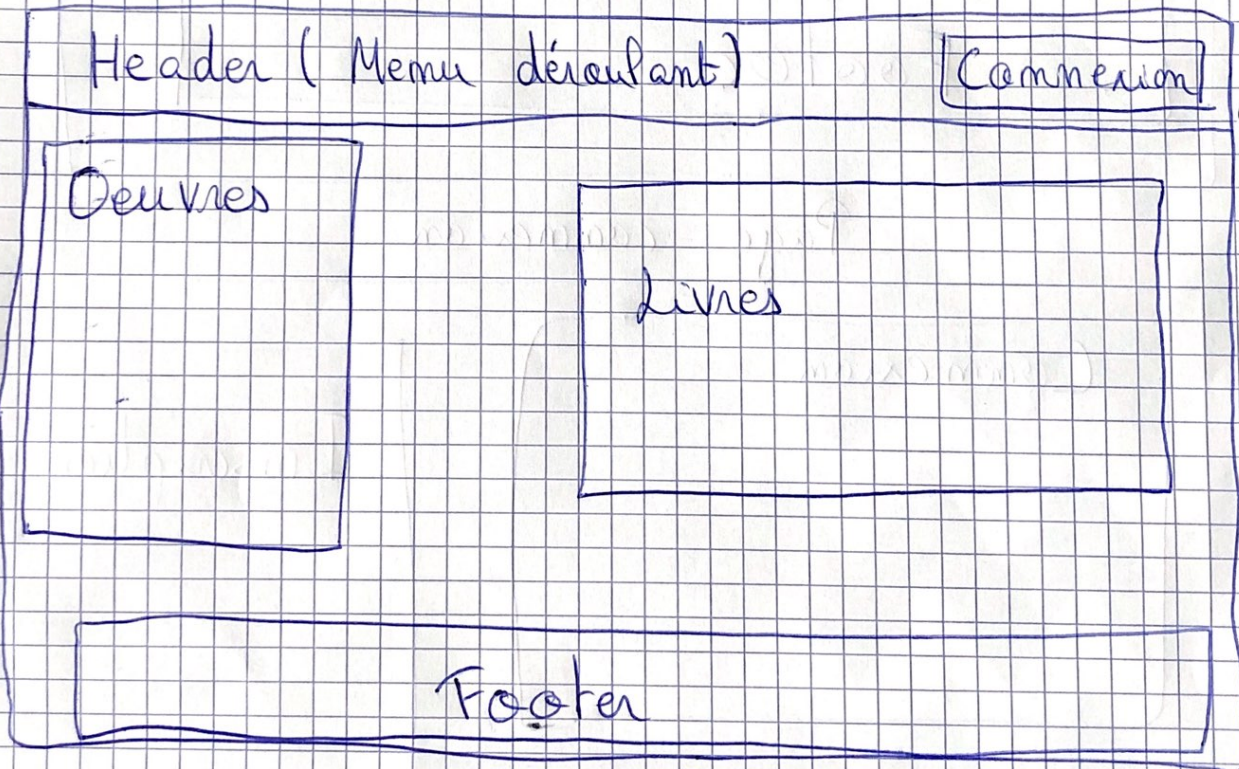 Header ( Menu déroulant )
Connexion
Oeuvres
Livres
Footer